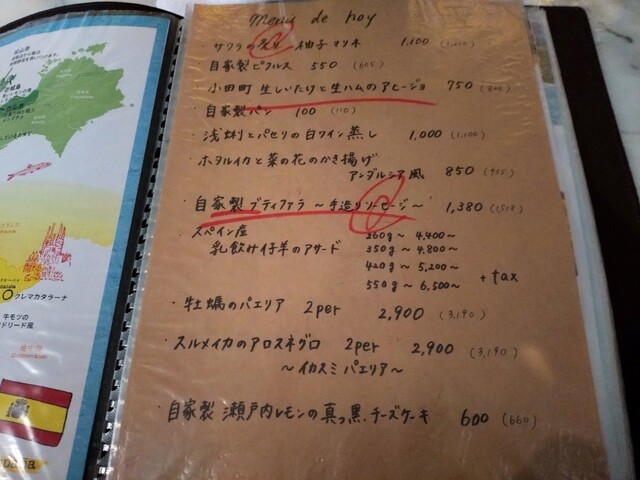 Menu de hoy
・サワラの炙り 柚子マリネ 1,100
・自家製ピクルス 550 (605)
・小田町 生しいたけと生ハムのアヒージョ 750
・自家製パン 100 (110)
・浅蜊とパセリの白ワイン蒸し 1,000 (1,100)
・ホタルイカと菜の花のかき揚げ
アンダルシア風 850
・自家製ブティファラ ～手造りソーセージ～ 1,380
・スペイン産
乳飲み仔羊のアサード
260g～ 4,400～
350g～ 4,800～
420g～ 5,200～
550g～ 6,500～
+tax
・牡蠣のパエリア 2per 2,900 (3,190)
・スルメイカのアロスネグロ 2per 2,900 (3,190)
～イカスミパエリア～
・自家製 瀬戸内レモンの真っ黒チーズケーキ 600 (660)
クレマカタラーナ
牛モツの
ドリード風